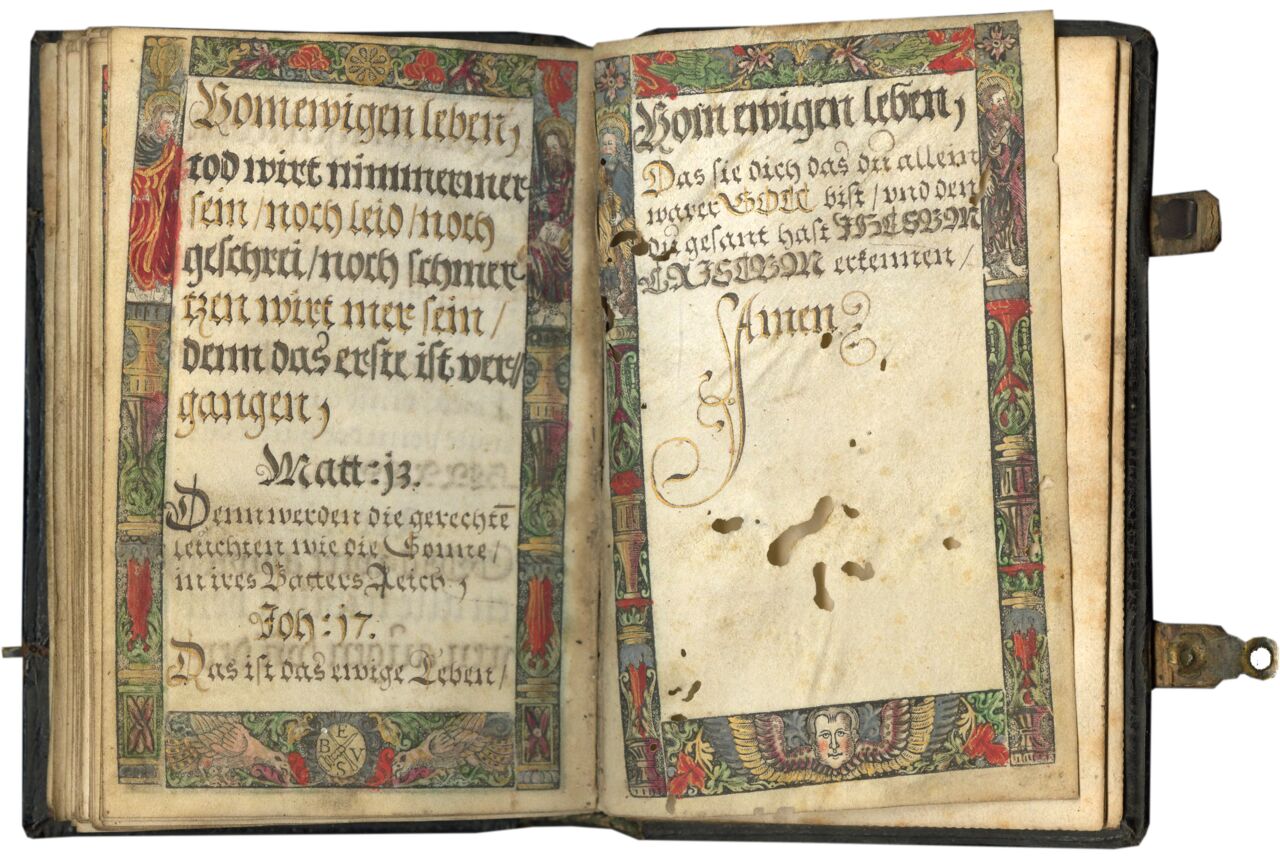 Vom ewigen leben,
tod wirt nimmermer
sein / noch leid / noch
geschrei / noch schmer-
tzen wirt mer sein /
denn das erste ist ver//
gangen,
Matt: j3.
Denn werden die gerechtē
leuchten wie die Sonne /
in ires Vatters Reich,
Joh: j7.
Das ist das ewige Leben /
E
B V
S
Vom ewigen leben,
Das sie dich das du allein
warer GOTT bist / vnd den
du gesant hast JHESVM
CRISTVM erkennen /
Amen